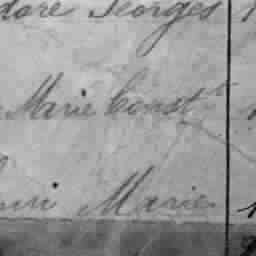 dore Georges
Marie Const
nri Marie